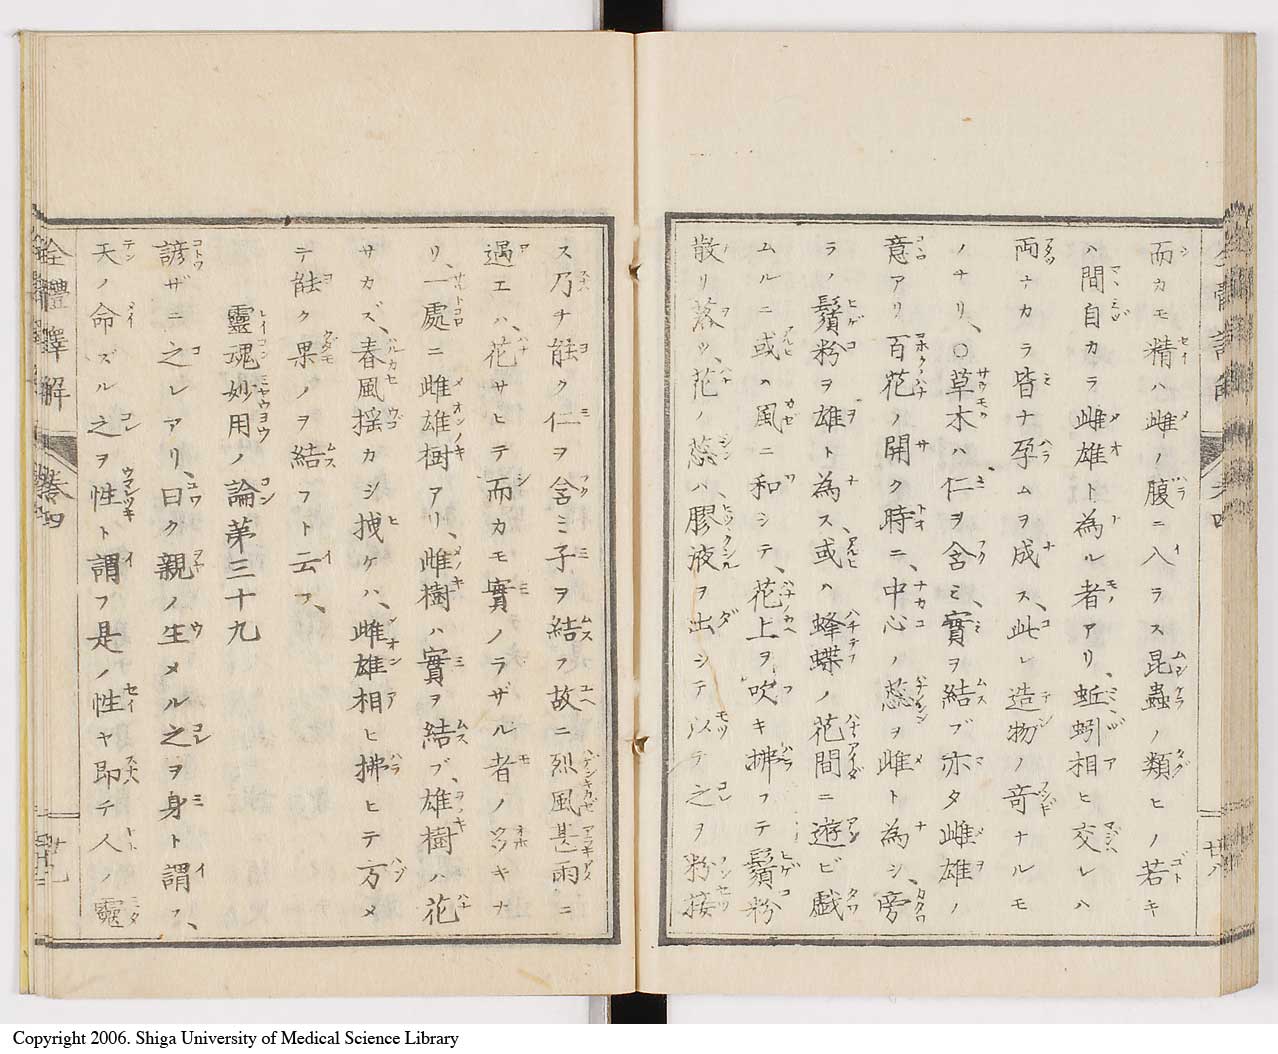 而カモ精ハ雌ノ腹ニ入ラス昆蟲ノ類ヒノ若キ
ハ間自カラ雌雄ト為ル者アリ、蚯蚓相ヒ交レハ
両ナカラ皆ナ孕ムヲ成ス、此レ造物ノ奇ナルモ
ノナリ、○草木ハ、仁ヲ含ミ、實ヲ結ブ亦タ雌雄ノ
意アリ百花ノ開ク時ニ、中心ノ蕊ヲ雌ト為シ、旁
ラノ鬚粉ヲ雄ト為ス、或ハ蜂蝶ノ花間ニ遊ビ戯
ムルニ或ハ風ニ和シテ、花上ヲ吹キ拂フテ鬚粉
散リ落ツ、花ノ蕊ハ、膠液ヲ出シテ以テ之ヲ粉接
ス乃チ能ク仁ヲ含ミ子ヲ結フ故ニ烈風甚雨ニ
過エハ、花サヒテ而カモ實ノラザル者ノ
リ、一處ニ雌雄樹アリ、雌樹ハ實ヲ結ブ、雄樹ハ花
サカズ、春風揺カシ拽ケハ、雌雄相ヒ拂ヒテ方メ
テ能ク果ノヲ結フト云フ、
靈魂妙用ノ論第三十九
諺ザニ之レアリ、曰ク親ノ生メル之ヲ身ト謂フ、
天ノ命ズル之ヲ性ト謂フ是ノ性ヤ即チ人ノ靈
全體譯解
卷四
十九
Copyright 2006. Shiga University of Medical Science Library